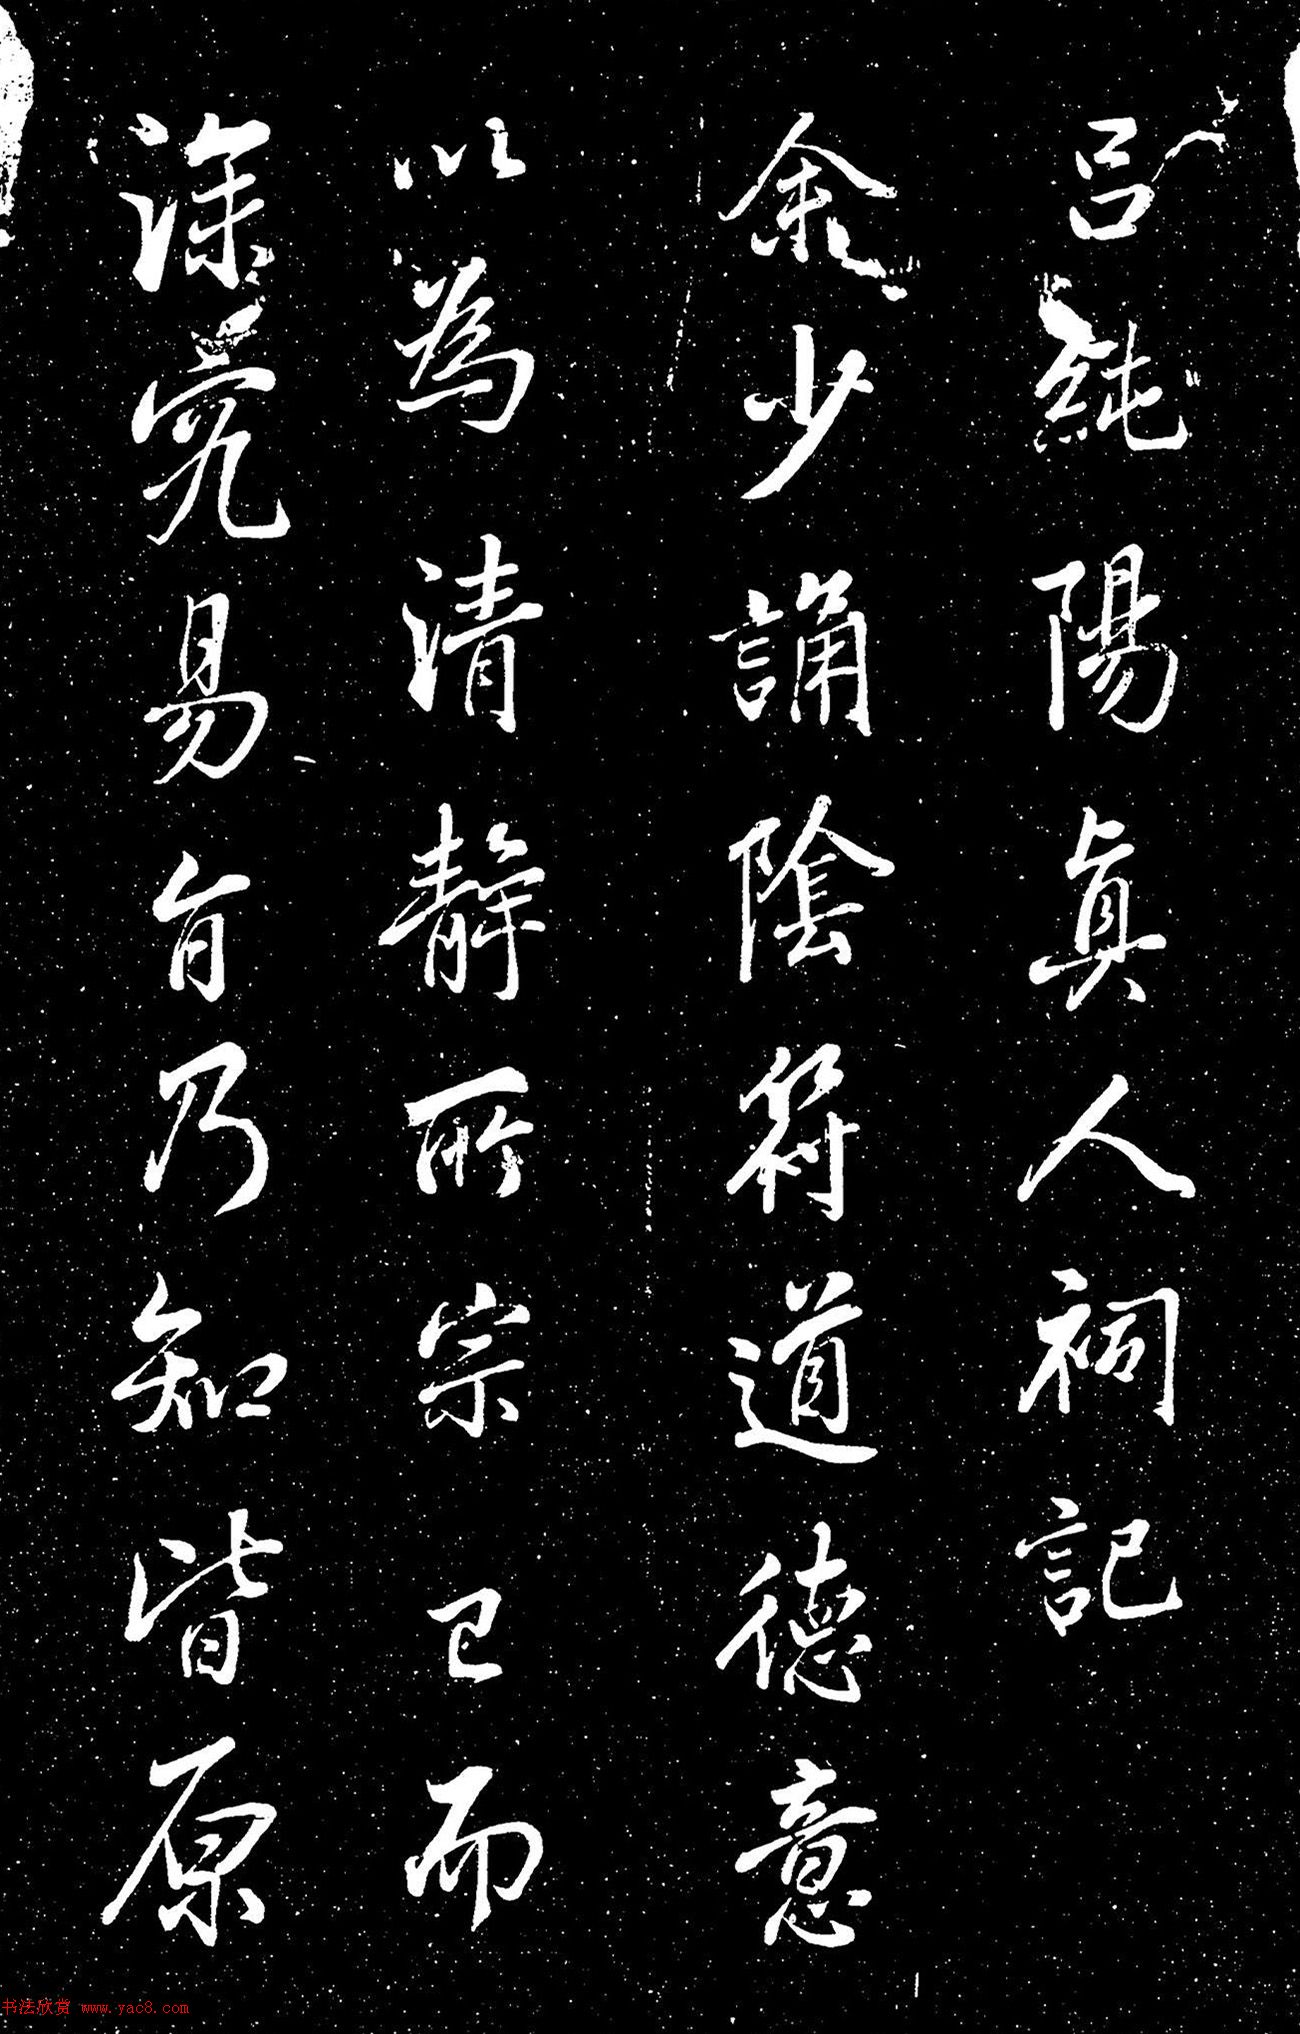 呂純陽真人祠記
余少誦陰符道德意
以為清静所宗已而
深究易旨乃知皆原
书法欣赏 www.yac8.com